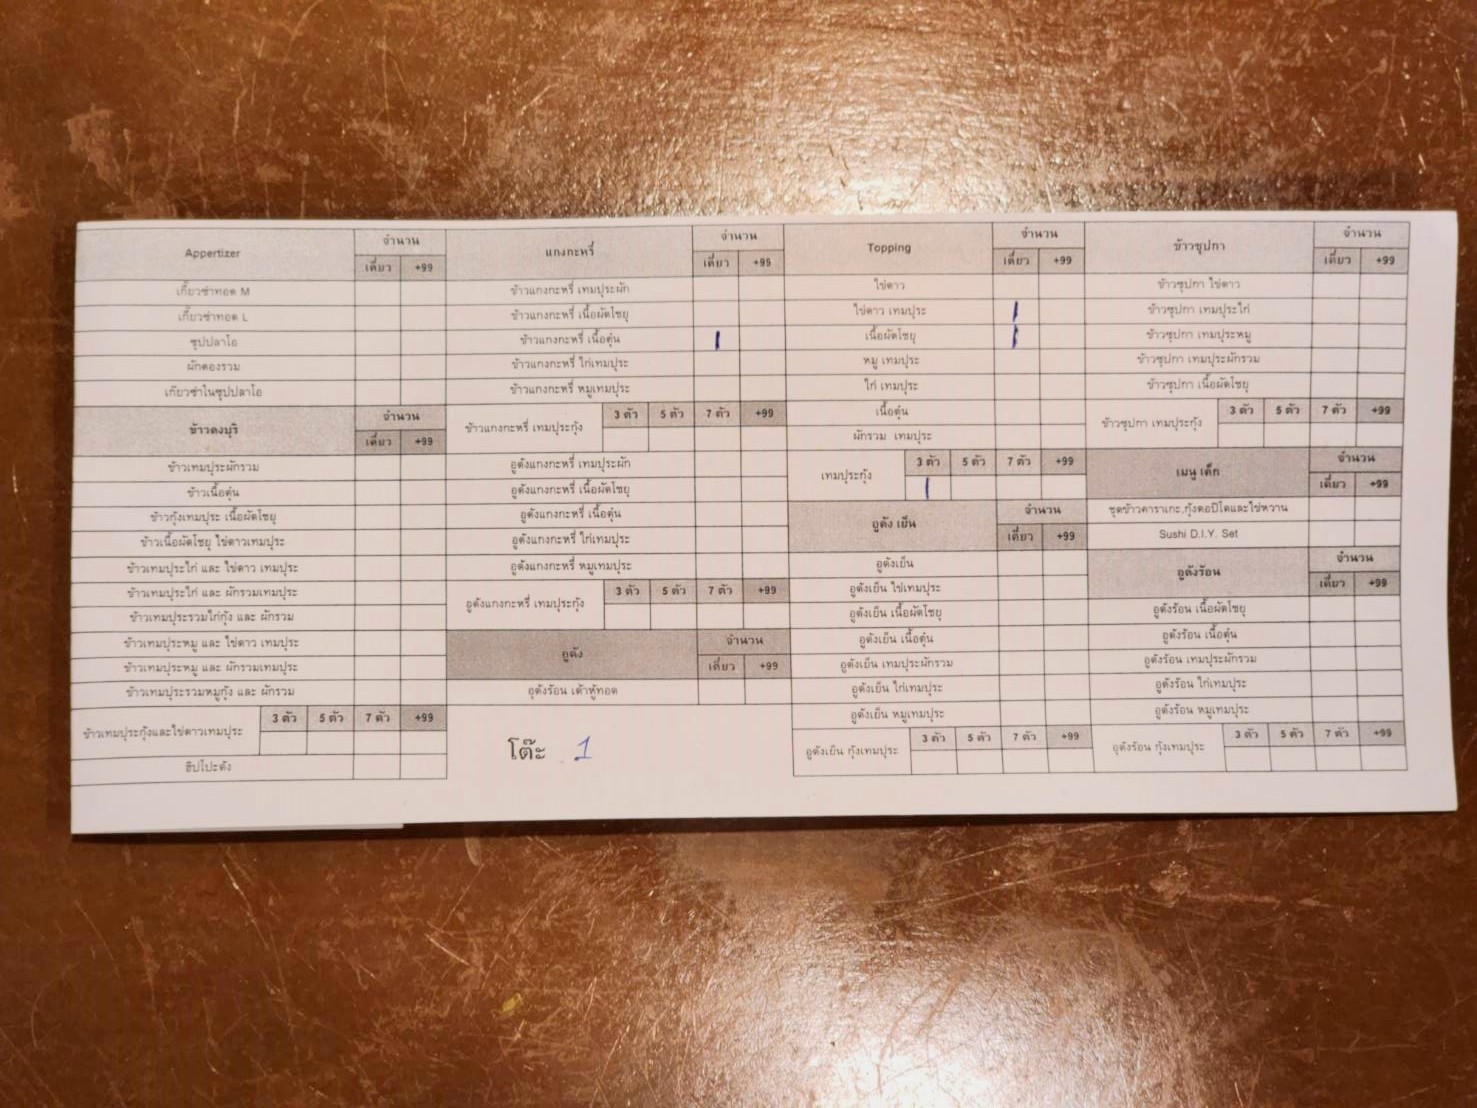 Appertizer
จำนวน
เดี่ยว +99
เกี๊ยวซ่าทอด M
เกี๊ยวซ่าทอด L
ซุปปลาโอ
ผักดองรวม
เกี๊ยวซ่าในซุปปลาโอ
ข้าวดงบุริ
จำนวน
เดี่ยว +99
ข้าวเทมปุระผักรวม
ข้าวเนื้อตุ๋น
ข้าวกุ้งเทมปุระ เนื้อผัดโชยุ
ข้าวเนื้อผัดโชยุ ไข่ดาวเทมปุระ
ข้าวเทมปุระไก่ และ ไข่ดาว เทมปุระ
ข้าวเทมปุระไก่ และ ผักรวมเทมปุระ
ข้าวเทมปุระรวมไก่กุ้ง และ ผักรวม
ข้าวเทมปุระหมู และ ไข่ดาว เทมปุระ
ข้าวเทมปุระหมู และ ผักรวมเทมปุระ
ข้าวเทมปุระรวมหมูกุ้ง และ ผักรวม
ข้าวเทมปุระกุ้งและไข่ดาวเทมปุระ
3 ตัว 5 ตัว 7 ตัว +99
ฮิปโปะดัง
แกงกะหรี่
จำนวน
เดี่ยว +99
ข้าวแกงกะหรี่ เทมปุระผัก
ข้าวแกงกะหรี่ เนื้อผัดโชยุ
ข้าวแกงกะหรี่ เนื้อตุ๋น 1
ข้าวแกงกะหรี่ ไก่เทมปุระ
ข้าวแกงกะหรี่ หมูเทมปุระ
ข้าวแกงกะหรี่ เทมปุระกุ้ง
3 ตัว 5 ตัว 7 ตัว +99
อูด้งแกงกะหรี่ เทมปุระผัก
อูด้งแกงกะหรี่ เนื้อผัดโชยุ
อูด้งแกงกะหรี่ เนื้อตุ๋น
อูด้งแกงกะหรี่ ไก่เทมปุระ
อูด้งแกงกะหรี่ หมูเทมปุระ
อูด้งแกงกะหรี่ เทมปุระกุ้ง
3 ตัว 5 ตัว 7 ตัว +99
อูด้ง
จำนวน
เดี่ยว +99
อูด้งร้อน เต้าหู้ทอด
โต๊ะ 1
Topping
จำนวน
เดี่ยว +99
ไข่ดาว
ไข่ดาว เทมปุระ 1
เนื้อผัดโชยุ 1
หมู เทมปุระ
ไก่ เทมปุระ
เนื้อตุ๋น
ผักรวม เทมปุระ
เทมปุระกุ้ง
3 ตัว 5 ตัว 7 ตัว +99
1
อูด้ง เย็น
จำนวน
เดี่ยว +99
อูด้งเย็น
อูด้งเย็น ไข่เทมปุระ
อูด้งเย็น เนื้อผัดโชยุ
อูด้งเย็น เนื้อตุ๋น
อูด้งเย็น เทมปุระผักรวม
อูด้งเย็น ไก่เทมปุระ
อูด้งเย็น หมูเทมปุระ
อูด้งเย็น กุ้งเทมปุระ
3 ตัว 5 ตัว 7 ตัว +99
ข้าวซุปกา
จำนวน
เดี่ยว +99
ข้าวซุปกา ไข่ดาว
ข้าวซุปกา เทมปุระไก่
ข้าวซุปกา เทมปุระหมู
ข้าวซุปกา เทมปุระผักรวม
ข้าวซุปกา เนื้อผัดโชยุ
ข้าวซุปกา เทมปุระกุ้ง
3 ตัว 5 ตัว 7 ตัว +99
เมนู เด็ก
จำนวน
เดี่ยว +99
ชุดข้าวคาราเกะ,กุ้งตอปิโดและไข่หวาน
Sushi D.I.Y. Set
อูด้งร้อน
จำนวน
เดี่ยว +99
อูด้งร้อน เนื้อผัดโชยุ
อูด้งร้อน เนื้อตุ๋น
อูด้งร้อน เทมปุระผักรวม
อูด้งร้อน ไก่เทมปุระ
อูด้งร้อน หมูเทมปุระ
อูด้งร้อน กุ้งเทมปุระ
3 ตัว 5 ตัว 7 ตัว +99